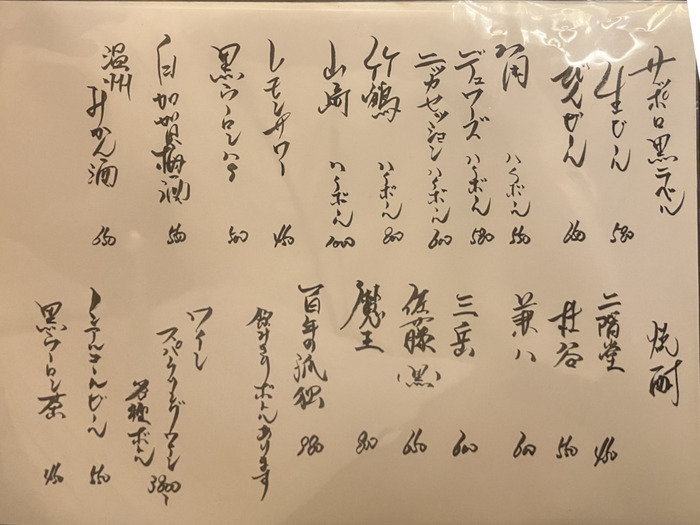 サッポロ黒ラベル
生びーる 580
びんびーる 650
角 ハイボール 550
デュワーズ ハイボール 580
ニッカセッション ハイボール 600
竹鶴 ハイボール 800
山崎 ハイボール 1000
レモンサワー 450
黒ウーロンハイ 500
白加賀梅酒 550
温州みかん酒 650
焼酎
二階堂 450
杜谷 550
兼八 600
三岳 600
佐藤(黒) 650
魔王 800
百年の孤独 980
飲みきりボトルあります
ワイン
スパークリングワイン
各種ボトル 3800〜
ノンアルコールビール 550
黒ウーロン茶 450